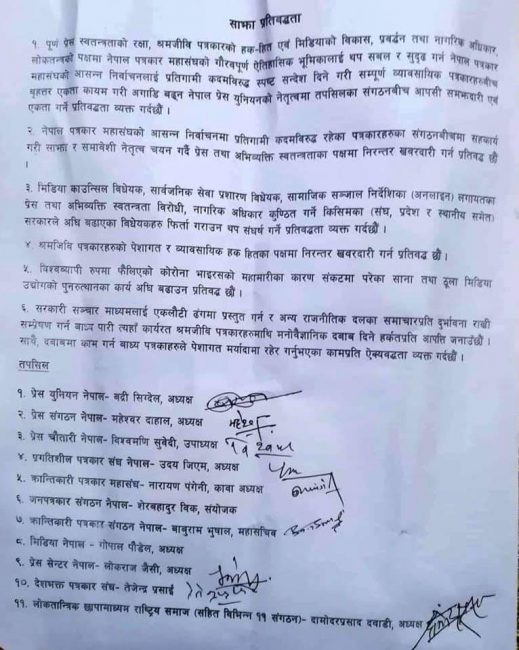 साझा प्रतिबद्धता
१. पूर्ण प्रेस स्वतन्त्रताको रक्षा, श्रमजीवि पत्रकारको हक-हित एवं मिडियाको विकास, प्रवर्द्धन तथा नागरिक अधिकार,
लोकतन्त्रको पक्षमा नेपाल पत्रकार महासंघको गौरवपूर्ण ऐतिहासिक भूमिकालाई थप सबल र सुदृढ गर्न नेपाल पत्रकार
महासंघको आसन्न निर्वाचनलाई प्रतिगामी कदमविरुद्ध स्पष्ट सन्देश दिने गरी सम्पूर्ण व्यावसायिक पत्रकारहरुबीच
बृहत्तर एकता कायम गरी अगाडि बढ्न नेपाल प्रेस युनियनको नेतृत्वमा तपसिलका संगठनबीच आपसी समझदारी एवं
एकता गर्ने प्रतिबद्धता व्यक्त गर्दछौं ।
२. नेपाल पत्रकार महासंघको आसन्न निर्वाचनमा प्रतिगामी कदमविरुद्ध रहेका पत्रकारहरुका संगठनबीचमा सहकार्य
गरी साझा र समावेशी नेतृत्व चयन गर्दै प्रेस तथा अभिव्यक्ति स्वतन्त्रताका पक्षमा निरन्तर खबरदारी गर्न प्रतिबद्ध छौं
।
३. मिडिया काउन्सिल विधेयक, सार्वजनिक सेवा प्रशारण विधेयक, सामाजिक सञ्जाल निर्देशिका (अनलाइन) लगायतका
प्रेस तथा अभिव्यक्ति स्वतन्त्रता विरोधी, नागरिक अधिकार कुण्ठित गर्ने किसिमका (संघ, प्रदेश र स्थानीय समेत)
सरकारले अघि बढाएका विधेयकहरु फिर्ता गराउन थप संघर्ष गर्ने प्रतिबद्धता व्यक्त गर्दछौं ।
४. श्रमजिवि पत्रकारहरुको पेशागत र व्याबसायिक हक हितका पक्षमा निरन्तर खबरदारी गर्न प्रतिबद्ध छौं ।
५. विश्वव्यापी रुपमा फैलिएको कोरोना भाइरसको महामारीका कारण संकटमा परेका साना तथा ठूला मिडिया
उद्योगको पुनरुत्थानका कार्य अघि बढाउन प्रतिबद्ध छौं ।
६. सरकारी सञ्चार माध्यमलाई एकलौटी ढंगमा प्रस्तुत गर्न र अन्य राजनीतिक दलका समाचारप्रति दुर्भावना राखी
सम्प्रेषण गर्न बाध्य पारी त्यहाँ कार्यरत श्रमजीवि पत्रकारहरुमाथि मनोवैज्ञानिक दबाब दिने हर्कतप्रति आपत्ति जनाउँछौं ।
साथै, दबाबमा काम गर्न बाध्य पत्रकारहरुले पेशागत मर्यादामा रहेर गर्नुभएका कामप्रति ऐक्यबद्धता व्यक्त गर्दछौं ।
तपसिल
१. प्रेस युनियन नेपाल- बद्री सिग्देल, अध्यक्ष
२. प्रेस संगठन नेपाल- महेश्वर दाहाल, अध्यक्ष
३. प्रेस चौतारी नेपाल- विश्वमणि सुबेदी, उपाध्यक्ष
४. प्रगतिशील पत्रकार संघ नेपाल- उदय जिएम, अध्यक्ष
५. क्रान्तिकारी पत्रकार महासंघ- नारायण पंगेनी, कावा अध्यक्ष
६. जनपत्रकार संगठन नेपाल- शेरबहादुर विक, संयोजक
७. क्रान्तिकारी पत्रकार संगठन नेपाल- बाबुराम भुषाल, महासचिव
८. मिडिया नेपाल - गोपाल पौडेल, अध्यक्ष
९. प्रेस सेन्टर नेपाल- लोकराज जैसी, अध्यक्ष
१०. देशभक्त पत्रकार संघ- तेजेन्द्र प्रसाई
११. लोकतान्त्रिक छापामाध्यम राष्ट्रिय समाज (सहित विभिन्न ११ संगठन)- दामोदरप्रसाद दवाडी, अध्यक्ष